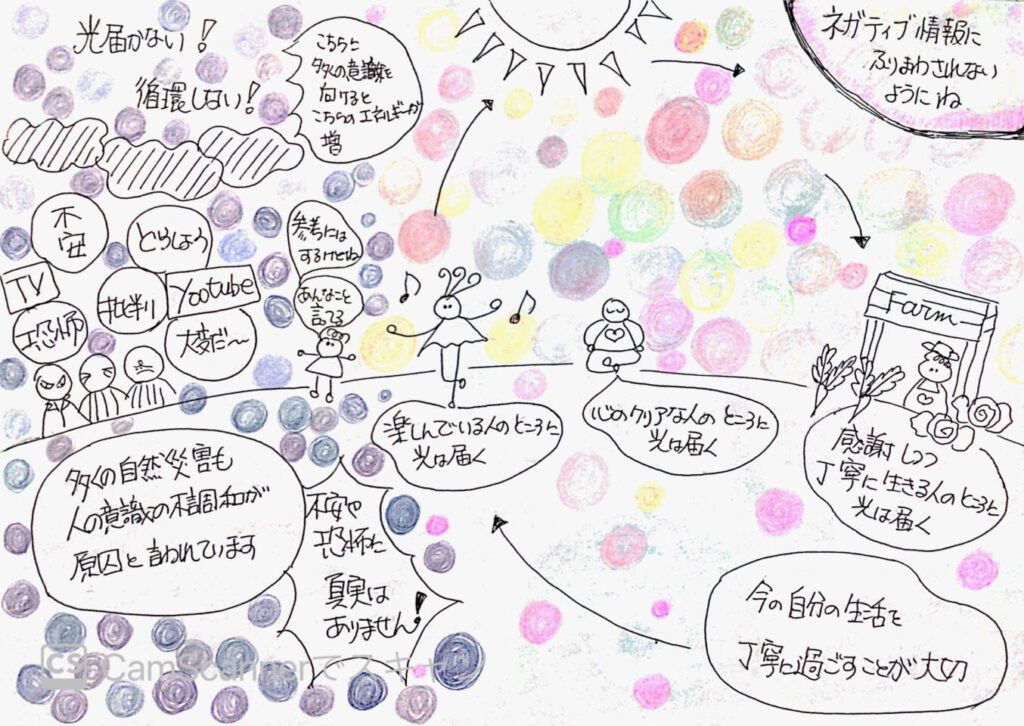 光届かない!
循環しない!
こちらに
多くの意識を
向けると
こちらのエネルギーが
増
ネガティブ情報に
ふりまわされない
ようにね
不安
どうしよう
TV
批判
Yootube
恐怖
大変だ〜
参考には
するけどね
あんなこと
言ってる
Farm
楽しんでいる人のところに
光は届く
心のクリアな人のところに
光は届く
感謝しつつ
丁寧に生きる人のところに
光は届く
多くの自然災害も
人の意識の不調和が
原因と言われています
不安や
恐怖に
真実は
ありません!
今の自分の生活を
丁寧に過ごすことが大切
CS CamScannerでスキャ